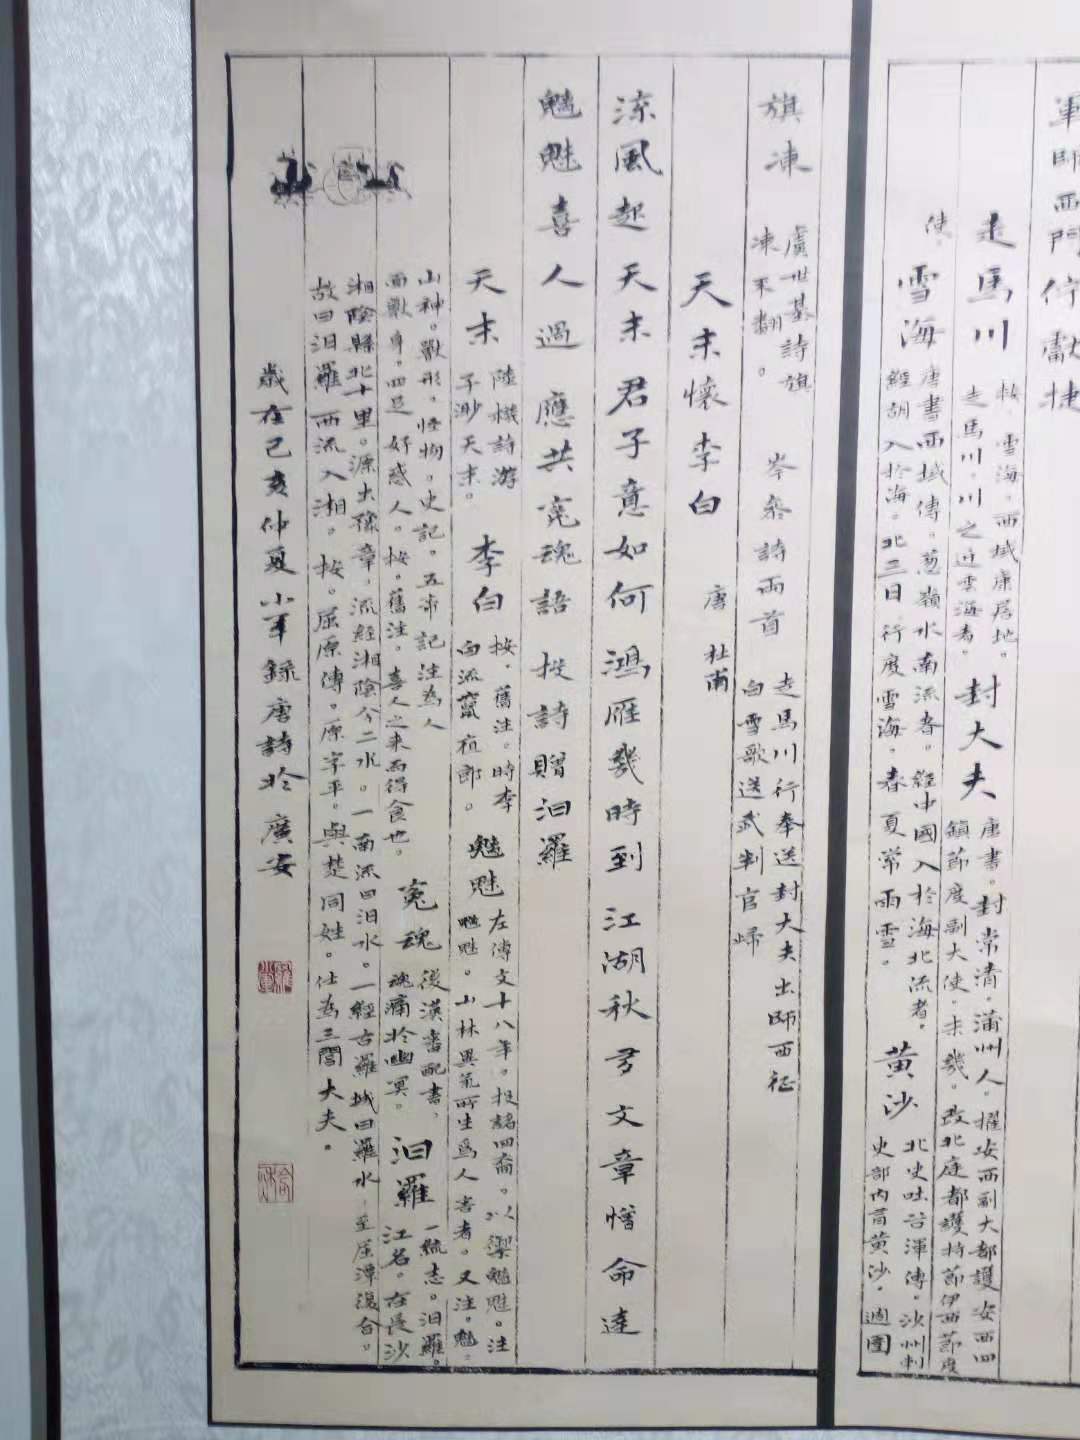 軍師西門佇獻捷
走馬川
按。雪海。西域康居地。
走馬川。川之近雪海者。
封大夫
唐書。封常清。蒲州人。擢安西副大都護安西四
鎮節度副大使。未幾。改北庭都護持節伊西節度
使。
雪海
唐書西域傳。葱嶺水南流者。經中國入於海北流者。
經胡入於海。北三日行度雪海。春夏常雨雪。
黃沙
北史吐谷渾傳。沙州刺
史部內有黃沙。週圍
旗凍
虞世基詩旗
凍不翻。
岑參詩兩首
走馬川行奉送封大夫出師西征
白雪歌送武判官歸
天末懷李白
唐 杜甫
涼風起天末君子意如何鴻雁幾時到江湖秋多文章憎命達
魑魅喜人過 應共冤魂語 投詩贈汨羅
天末
陸機詩游
子渺天末。
李白
按。舊注。時李
白流竄夜郎。
魑魅
左傳文十八年。投諸四裔。以禦魑魅。注
魑魅。山林異氣所生爲人害者。又注。魑。
山神。獸形。怪物。史記。五帝記注為人
面獸身。四足好惑人。按。舊注。喜人之來而得食也。
冤魂
後漢書
魂痛於幽冥。
汨羅
一統志。汨羅。
江名。在長沙
湘陰縣北十里。源出豫章。流經湘陰分二水。一南流曰汨水。一經古羅城曰羅水 至屈潭復合。
故曰汨羅西流入湘。按。屈原傳。原字平。與楚同姓。仕為三閭大夫。
歲在己亥仲夏小軍錄唐詩於廣安